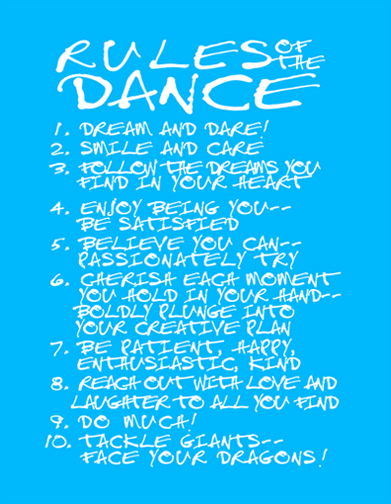 RULES OF THE
DANCE
1. DREAM AND DARE!
2. SMILE AND CARE
3. FOLLOW THE DREAMS YOU
FIND IN YOUR HEART
4. ENJOY BEING YOU--
BE SATISFIED
5. BELIEVE YOU CAN--
PASSIONATELY TRY
6. CHERISH EACH MOMENT
YOU HOLD IN YOUR HAND--
BOLDLY PLUNGE INTO
YOUR CREATIVE PLAN
7. BE PATIENT, HAPPY,
ENTHUSIASTIC, KIND
8. REACH OUT WITH LOVE AND
LAUGHTER TO ALL YOU FIND
9. DO MUCH!
10. TACKLE GIANTS--
FACE YOUR DRAGONS!